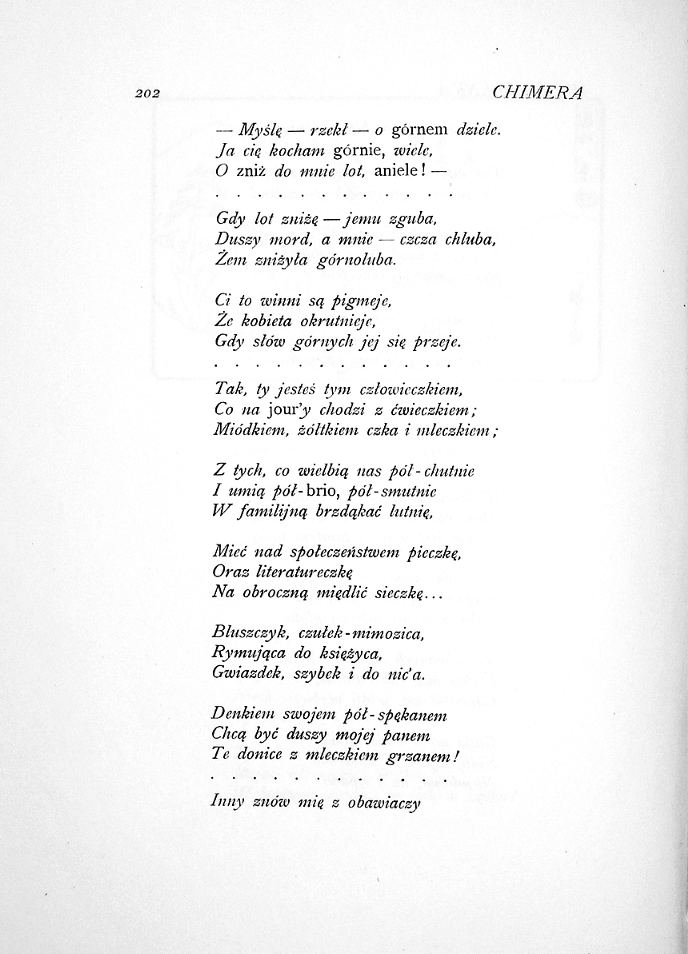 202
CHIMERA
— Myślę — rzekł — o górnem dziele.
Ja cię kocham górnie, wiele,
O zniż do mnie lot, aniele! —
. . . . . . . . . . . .
Gdy lot zniżę — jemu zguba,
Duszy mord, a mnie — czcza chluba,
Żem zniżyła górnoluba.
Ci to winni są pigmeje,
Że kobieta okrutnieje,
Gdy słów górnych jej się przeje.
. . . . . . . . . . . .
Tak, ty jesteś tym człowieczkiem,
Co na jour'y chodzi z ćwieczkiem;
Miódkiem, żółtkiem czka i mleczkiem;
Z tych, co wielbią nas pół-chutnie
I umią pół-brio, pół-smutnie
W familijną brzdąkać lutnię,
Mieć nad społeczeństwem pieczkę,
Oraz literatureczkę
Na obroczną międlić sieczkę...
Bluszczyk, czułek-mimozica,
Rymująca do księżyca,
Gwiazdek, szybek i do nic'a.
Denkiem swojem pół-spękanem
Chcą być duszy mojej panem
Te donice z mleczkiem grzanem!
. . . . . . . . . . . .
Inny znów mię z obawiaczy